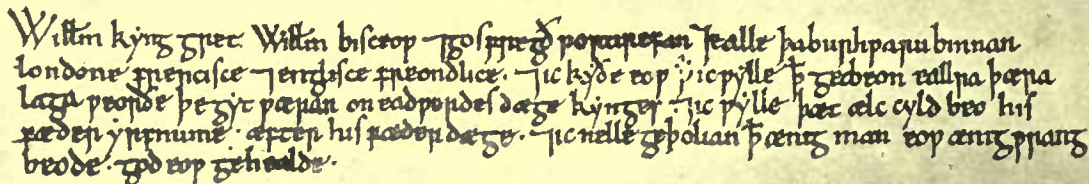 Willm̄ kyng gret Willm̄ bisceop ⁊ gosfregð portirefan ⁊ ealle þa burhƿaru binnan
londone frencisce ⁊ englisce freondlice· ⁊ ic kyðe eoƿ ꝥ ic ƿylle ꝥ get beon eallra þæra
laga ƿeorðe þe gyt ƿæran on eadƿerdes dæge kynges· ⁊ ic ƿylle þæt ælc cyld beo his
fæder yrfnume· æfter his fæder dæge· ⁊ ic nelle geþolian ꝥ ænig man eoƿ ænig ƿrang
beode· god eoƿ gehealde·